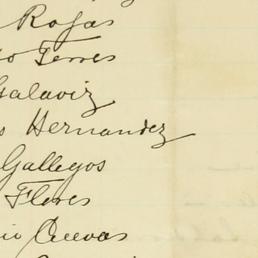 Rojas
o Torres
Galaviz
s Hernandez
Gallegos
Flores
io Cuevas